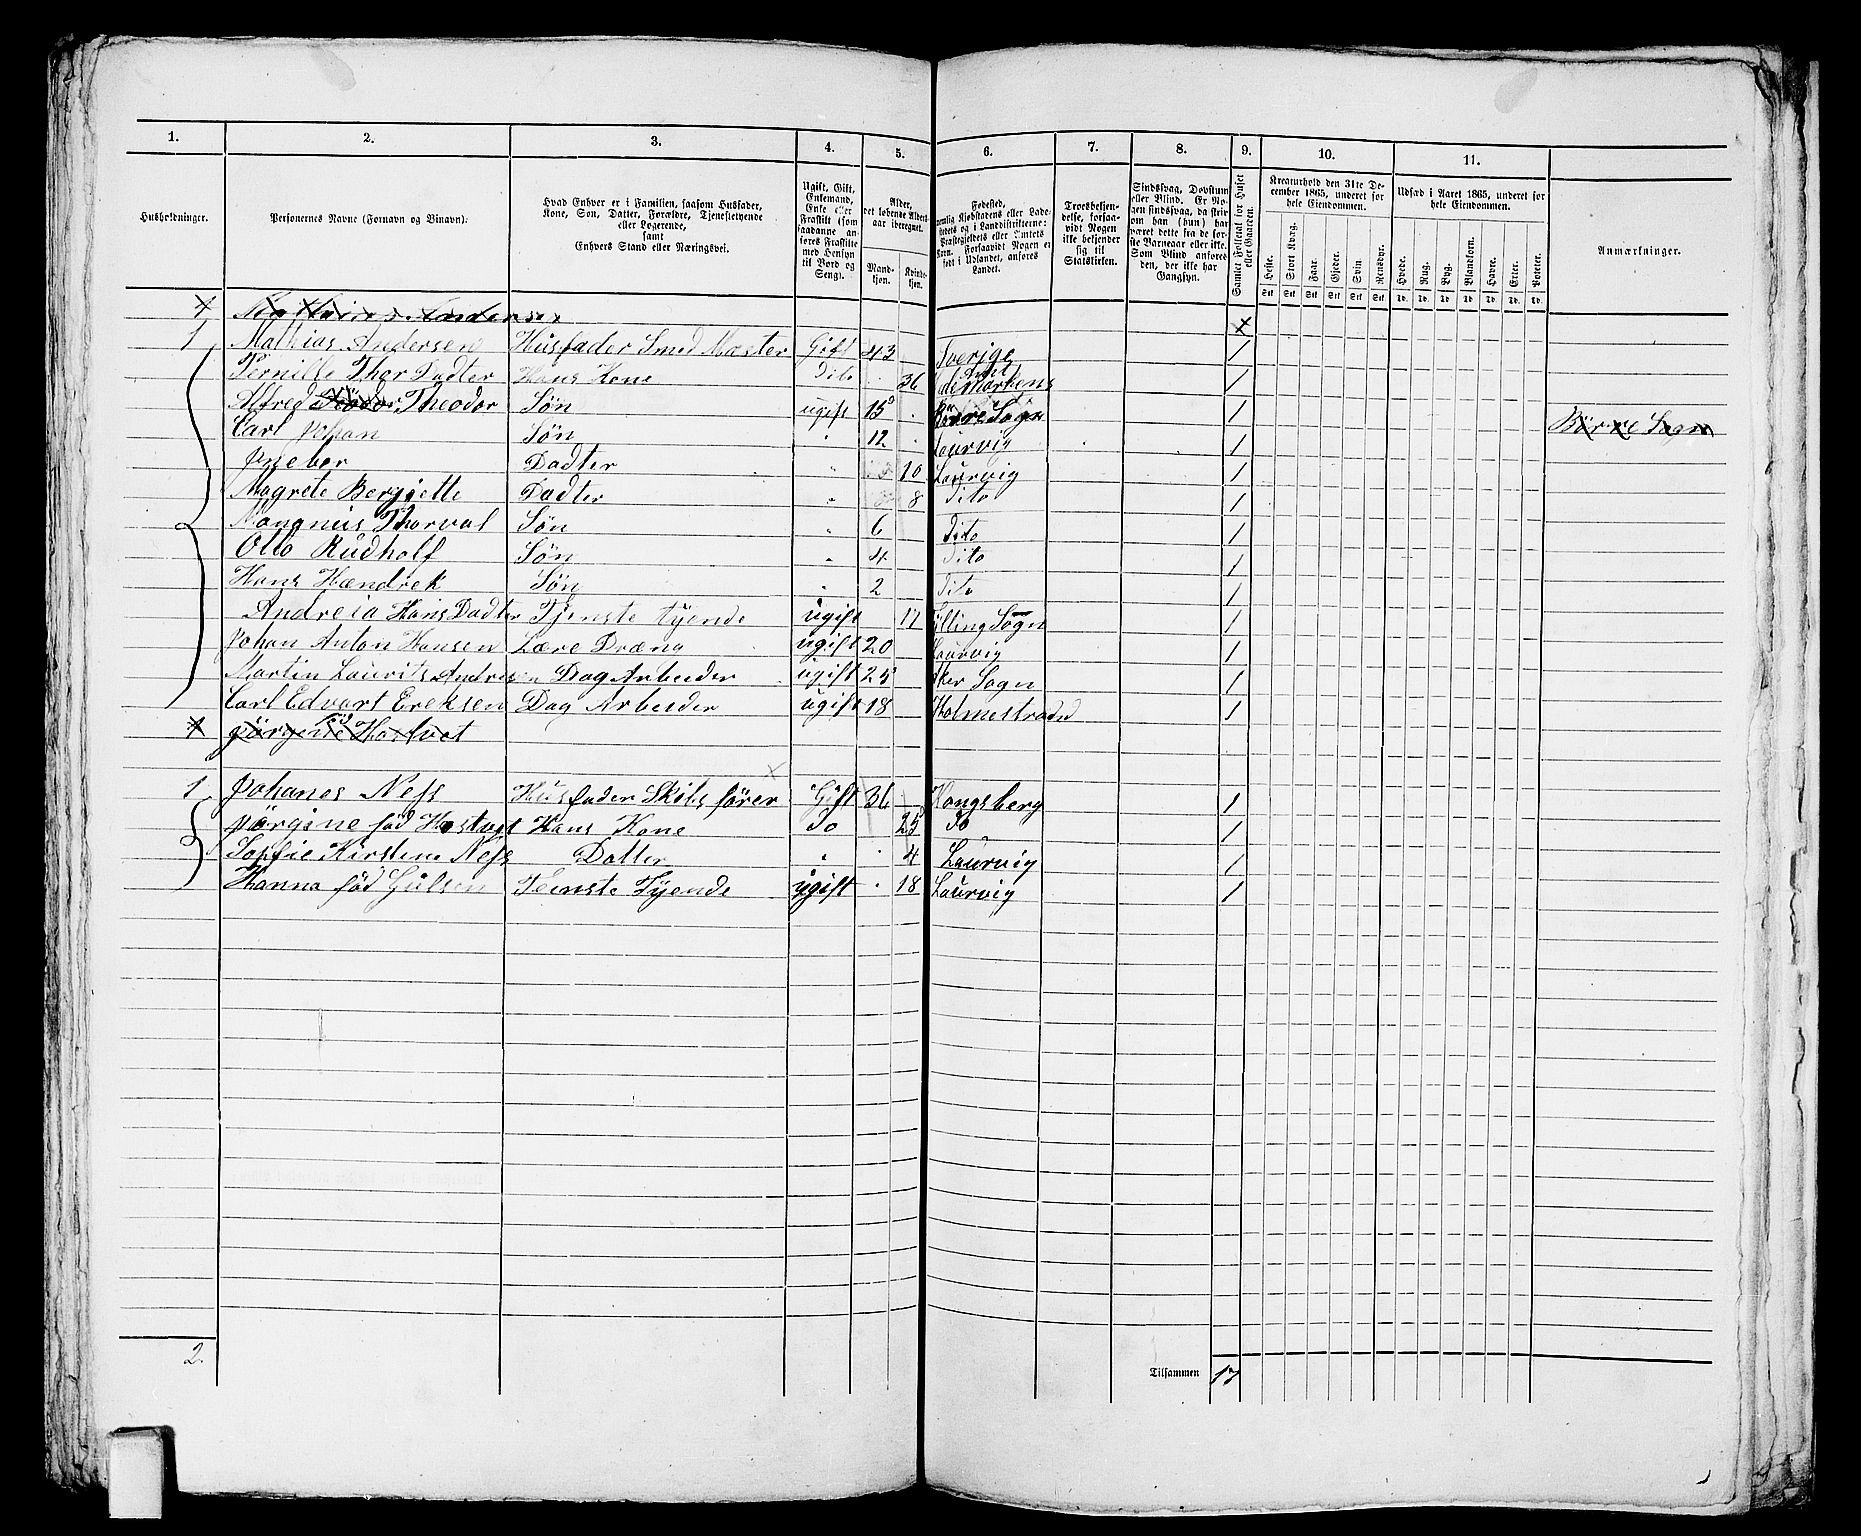 1. 2. 3. 4. 5. 6. 7. 8. 9. 10. 11.
Husholdninger.
Personernes Navne (Fornavn og Binavn).
Hvad Enhver er i Familien, saasom Husfader,
Kone, Søn, Datter, Forældre, Tjenestetyende
eller Logerende,
samt
Enhvers Stand eller Næringsvei.
Ugift, Gift,
Enkemand,
Enke eller
Fraskilt (som
saadanne an-
føres Fraskilte
med Hensyn
til Bord og
Seng).
Alder,
det løbende Alders-
aar iberegnet.
Mand-
kjøn.
Kvinde-
kjøn.
Fødested,
nemlig Kjøbstadens eller Lade-
stedets og i Landdistrikterne:
Præstegjeldets eller Amtets
Navn. Forsaavidt Nogen er
født i Udlandet, anføres
Landet.
Troesbekjen-
delse, forsaa-
vidt Nogen
ikke bekjender
sig til
Statskirken.
Sindssvag, Døvstum
eller Blind. Er No-
gen sindssvag, da skriv
om han (hun) har
været dette fra de før-
ste Barneaar eller ikke.
Som Blind anføres
den, der ikke har
Gangsyn.
Samlet Folketal for Huset
eller Gaarden.
Kreaturhold den 31te De-
cember 1865, underet for
hele Eiendommen.
Heste. Stort Kvæg. Faar. Gjeder. Svin. Rensdyr.
Stk Stk Stk Stk Stk Stk
Udsæd i Aaret 1865, underet for
hele Eiendommen.
Hvede. Rug. Byg. Blandkorn. Havre. Erter. Poteter.
Td. Td. Td. Td. Td. Td. Td.
Anmærkninger.
Mathias Andersen
1 Mathias Andersen Husfader Smed Mæster Gift 43 Sverige 1
Pernille Thor Dadter Hans Kone Dito 36 1
Alfred Theodor Søn ugift 15 Børre Sogn 1 Børre Sogn
Carl Johan Søn " 12 Laurvig 1
Dadter " 10 Laurvig 1
Magrete Bergiette Dadter " 8 Dito 1
Mangnus Thorval Søn " 6 Dito 1
Otto Rudholf Søn " 4 Dito 1
Hans Hændrek Søn " 2 Dito 1
Andreia Hans Dadter Tjenste tyende ugift 17 Sogn 1
Johan Anton Hansen Lære Dræng ugift 20 Laurvig 1
Martin Laurits Andresen Dag Arbeider ugift 25 Sogn 1
Carl Edvart Ereksen Dag Arbeider ugift 18 Holmestrand 1
Jörgene Hostvet
1 Johanes Ness Husfader Skibsfører Gift 36 Kongsberg 1
Jörgine fød Hostvet Hans Kone Do 25 Do 1
Sopfie Kirstene Ness Datter " 4 Laurvig 1
Hanna fød Gulsen Teenste Tyende ugift 18 Laurvig 1
2. Tilsammen 17